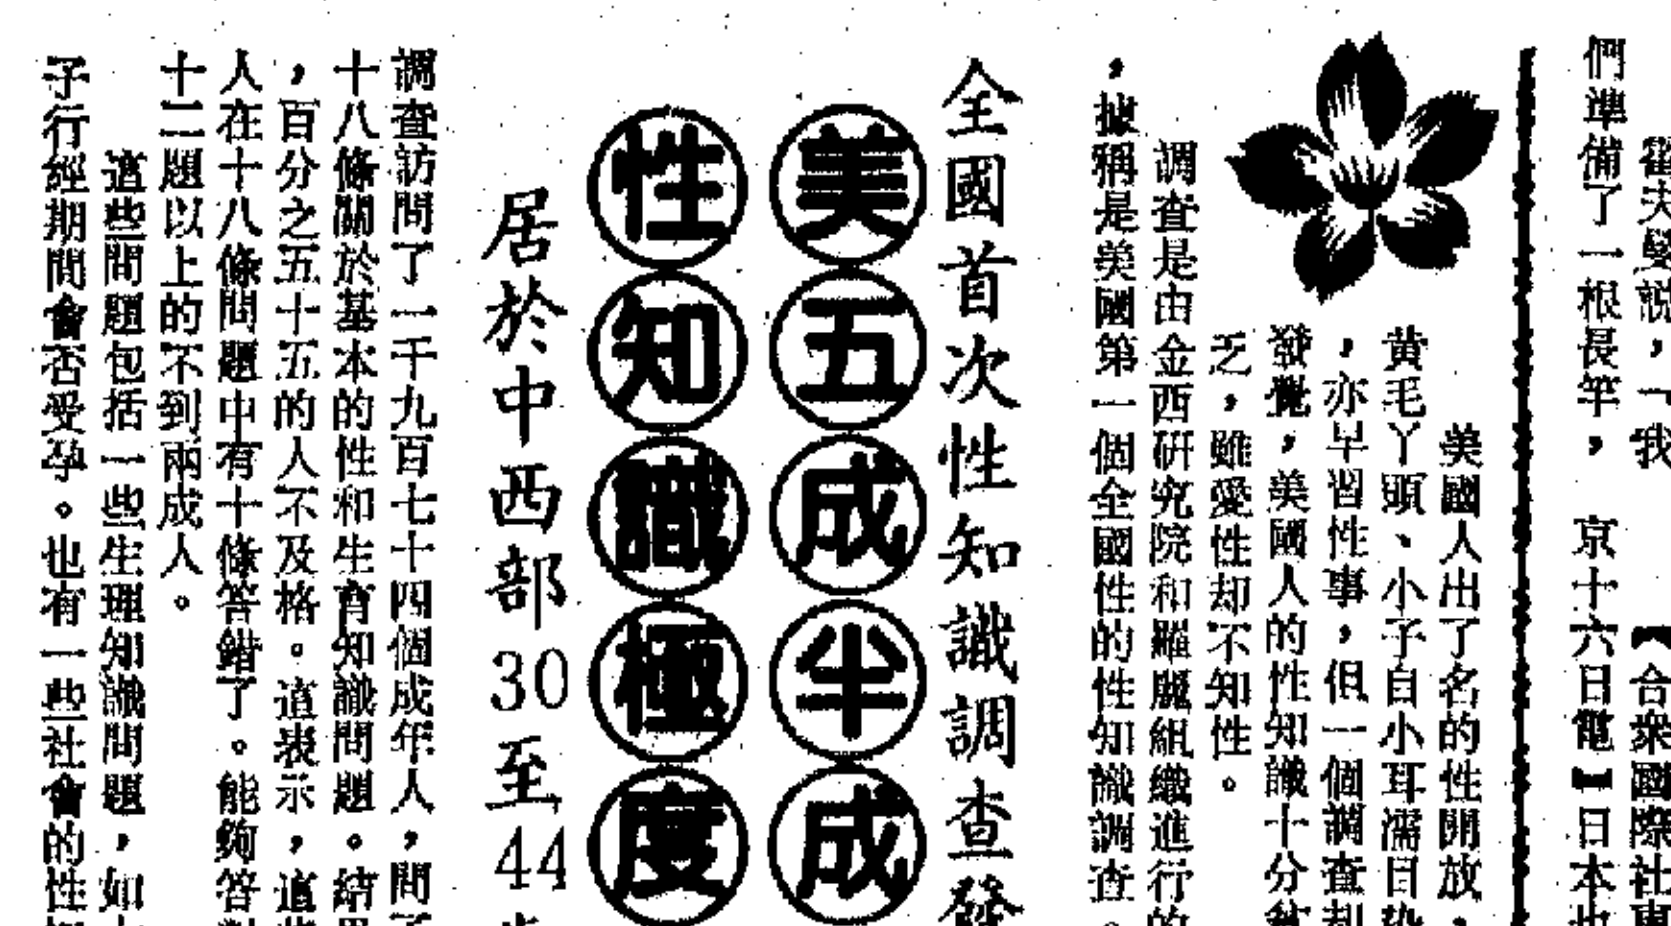 霍夫曼説，「我
們準備了一根長竿，
【合衆國際社東
京十六日電】日本也
美國人出了名的性開放，
黄毛丫頭、小子自小耳濡目染
，亦早習性事，但一個調查却
發覺，美國人的性知識十分缺
乏，雖愛性却不知性。
調查是由金西研究院和羅麗組織進行的
，據稱是美國第一個全國性的性知識調查。
全國首次性知識調查發
美五成半成
性知識極度
居於中西部30至44
調查訪問了一千九百七十四個成年人，問了
十八條關於基本的性和生育知識問題。結果
，百分之五十五的人不及格。這表示，這些
人在十八條問題中有十條答錯了。能夠答對
十二題以上的不到兩成人。
這些問題包括一些生理知識問題，如
子行經期間會否受孕。也有一些社會的性